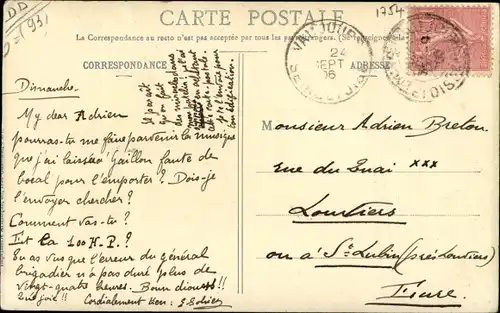 DD
1754
CARTE POSTALE
La Correspondance au recto n'est pas acceptée par tous les pays étrangers. (Se renseigner à la
CORRESPONDANCE
ADRESSE
24
SEPT
06
Dimanche
My dear Adrien
pourras-tu me faire parvenir la musique
que j'ai laissée à Gaillon faute de
bocal pour l'emporter ? Dois-je
l'envoyer chercher ?
Comment vas-tu ?
Et la 100 H.P. ?
Tu as vu que l'erreur du général
brigadier n'a pas duré plus de
vingt-quatre heures. Bonn diousss !!
Cordialement
Il paraît
qu'on fait
des miracles dans
Monsieur Adrien Breton
rue du Quai xxx
Louviers
ou à St-Lubin (près Louviers)
Eure.